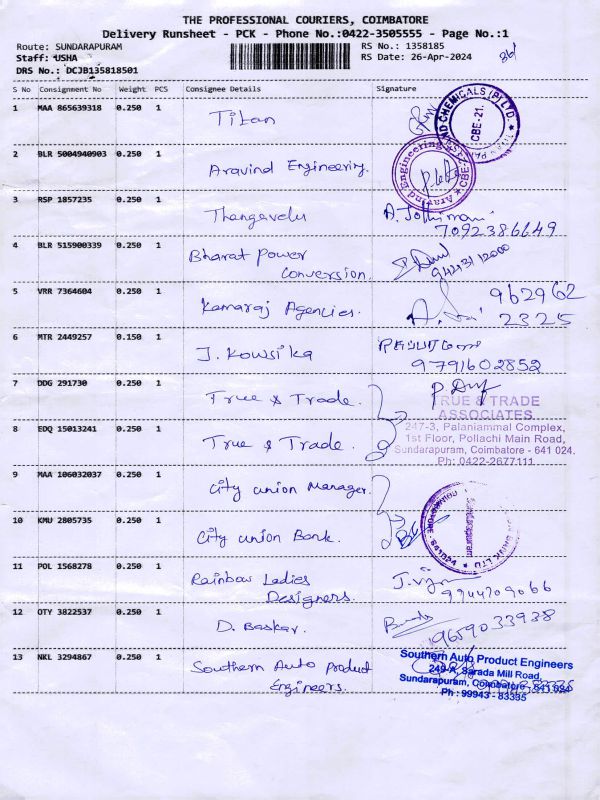 THE PROFESSIONAL COURIERS, COIMBATORE
Delivery Runsheet - PCK - Phone No.:0422-3505555 - Page No.:1
Route: SUNDARAPURAM
RS No.: 1358185
Staff: USHA
RS Date: 26-Apr-2024
DRS No.: DCJB135818501
S No Consignment No Weight PCS Consignee Details Signature
1 MAA 865639318 0.250 1 Titan
CBE-21.
2 BLR 5004940903 0.250 1 Aravind Engineering.
Aravind Engineering
3 RSP 1857235 0.250 1 Thangavelu A. Jothimani
7092386649
4 BLR 515900339 0.250 1 Bharat Power
Conversion.
5 VRR 7364604 0.250 1 Kamaraj Agencies. 962962
2325
6 MTR 2449257 0.150 1 J. Kowsika
9791602852
7 DDG 291730 0.250 1 True & Trade.
TRUE & TRADE
ASSOCIATES
247-3, Palaniammal Complex,
8 EDQ 15013241 0.250 1 True & Trade. 1st Floor, Pollachi Main Road,
Sundarapuram, Coimbatore - 641 024.
Ph: 0422-2677111
9 MAA 106032037 0.250 1 City union Manager.
10 KMU 2805735 0.250 1 City union Bank.
Sundarapuram
11 POL 1568278 0.250 1 Rainbow Ladies
Designers. 9944709066
12 OTY 3822537 0.250 1 D. Baskar. 9659033938
13 NKL 3294867 0.250 1 Southern Auto Product
Engineers.
Southern Auto Product Engineers
249-A, Sarada Mill Road,
Sundarapuram, Coimbatore - 641 024
Ph : 99943 - 83335